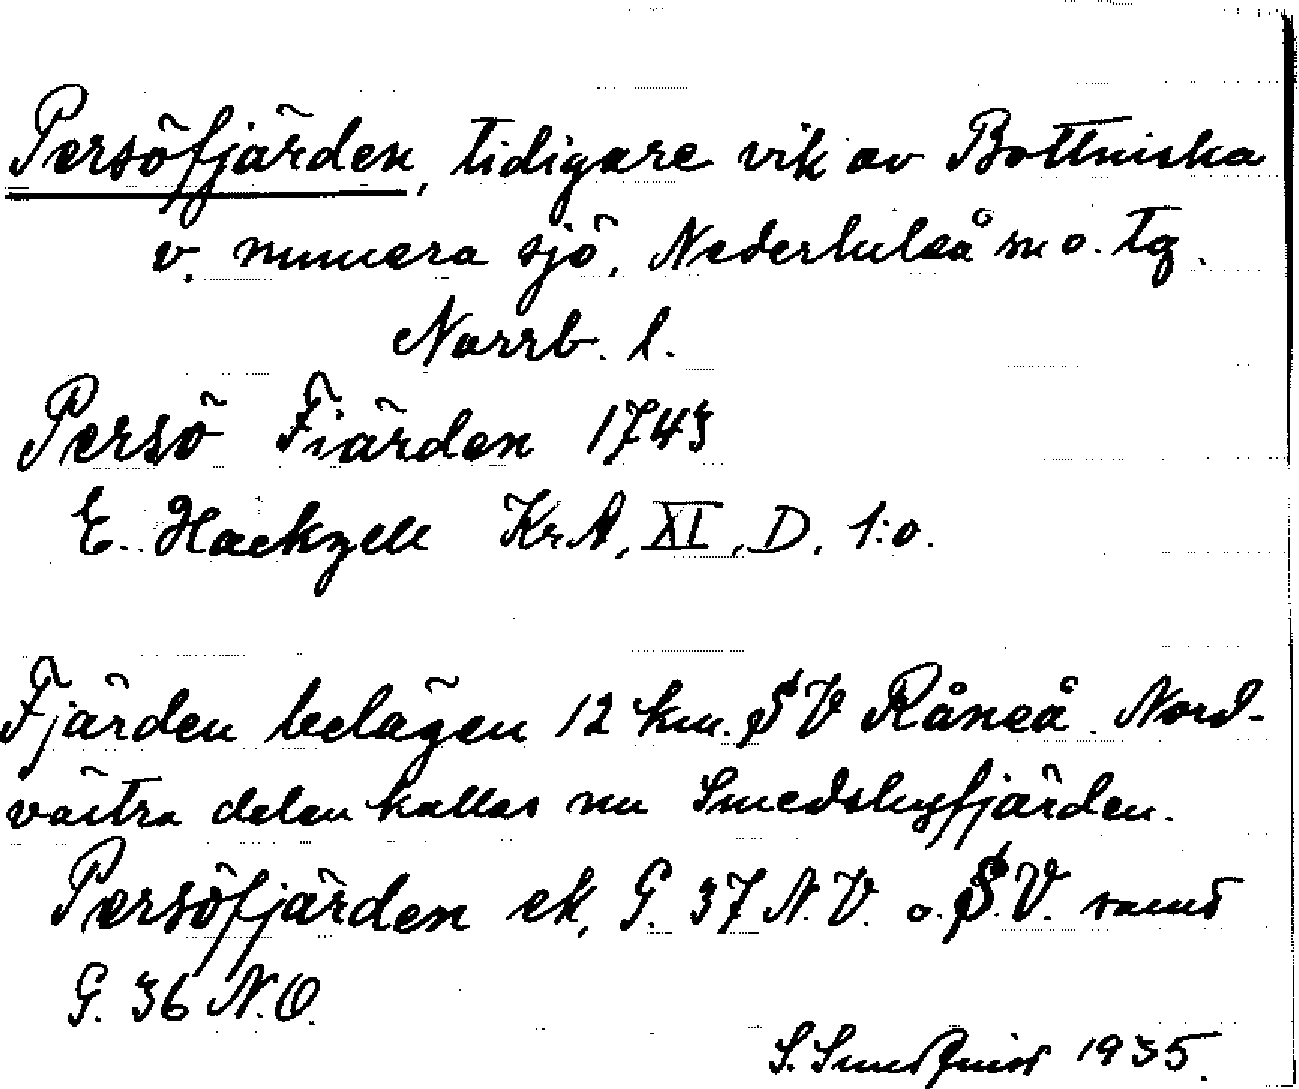 Persöfjärden, tidigare vik av Bottniska
v. numera sjö, Nederluleå sn o. tg.
Norrb. l.
Persö Fiärden 1743
E. Hackzell Kr.A, XI, D, 1:o.
Fjärden belägen 12 km. SV Råneå. Nord-
västra delen kallas nu Smedsbyfjärden.
Persöfjärden ek. G. 37 N.V. o. S.V. samt
G. 36 N.O.
S. Sundquist 1935.